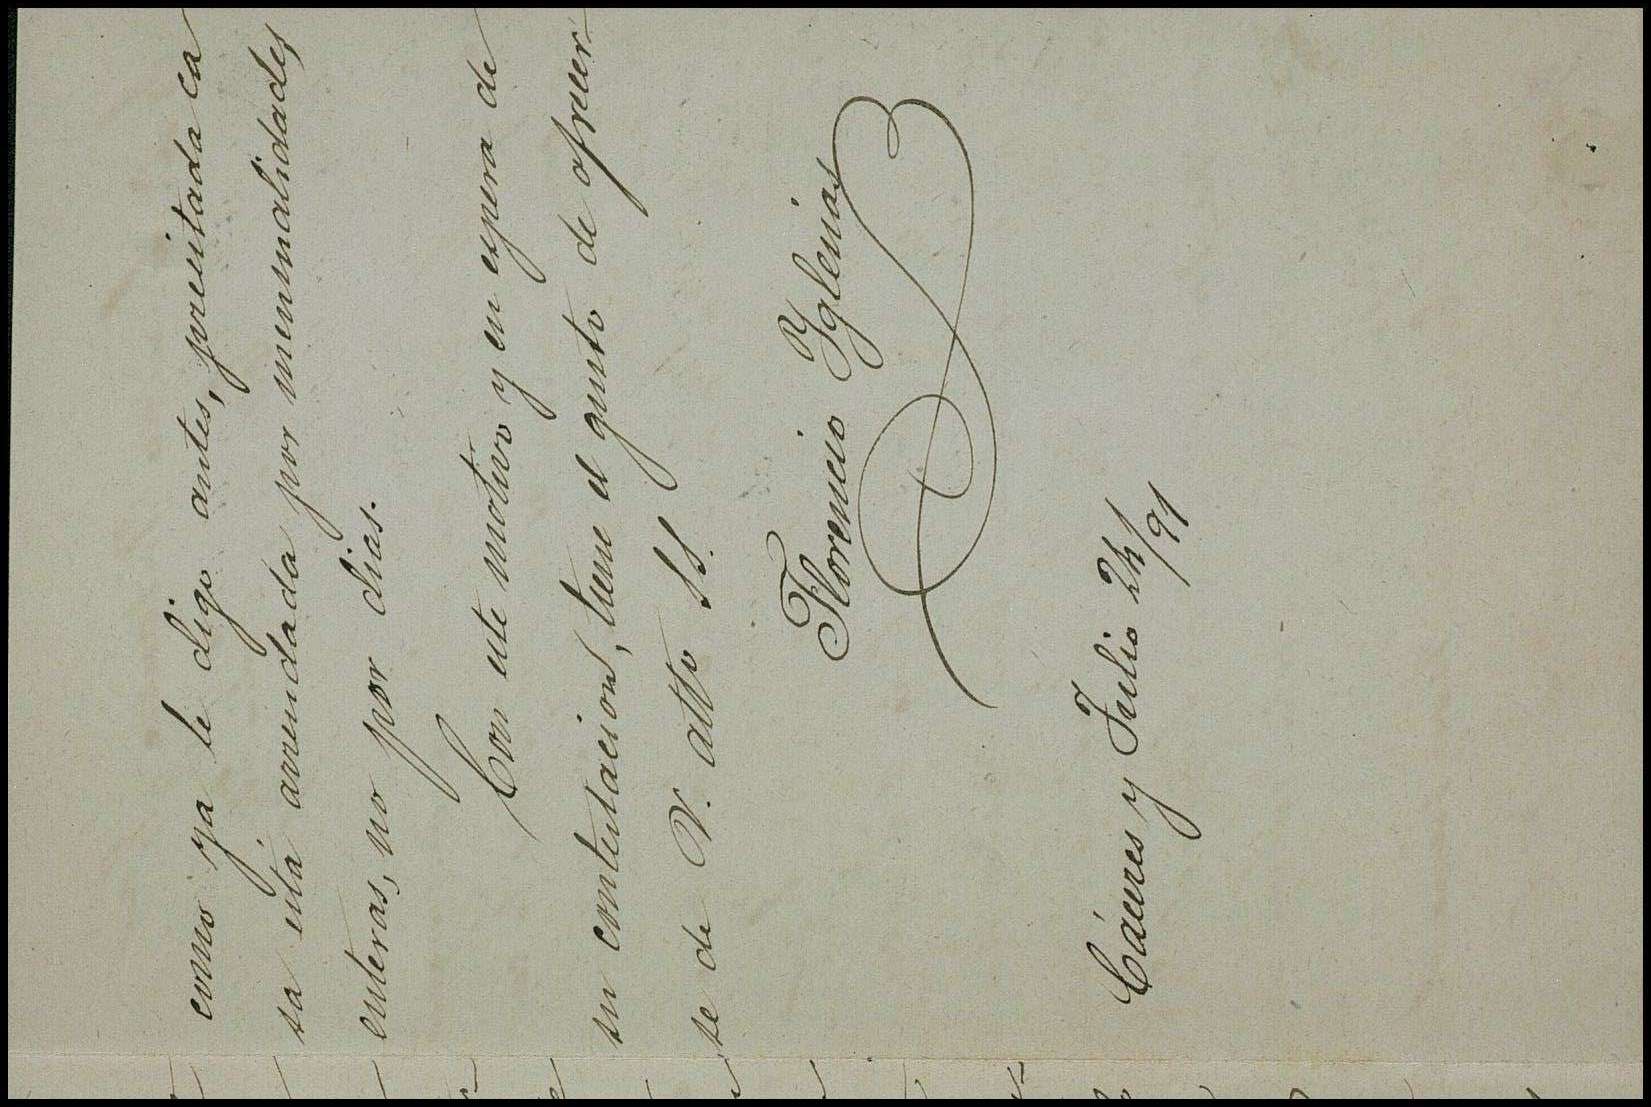 como ya le digo antes, precitada ca
sa está arrendada por mensualidades
enteras, no por dias.
Con este motivo y en espera de
su contestacion, tiene el gusto de ofrecer
se de V. atto S.S.
Florencio Yglesias
Cáceres y Julio 24/91